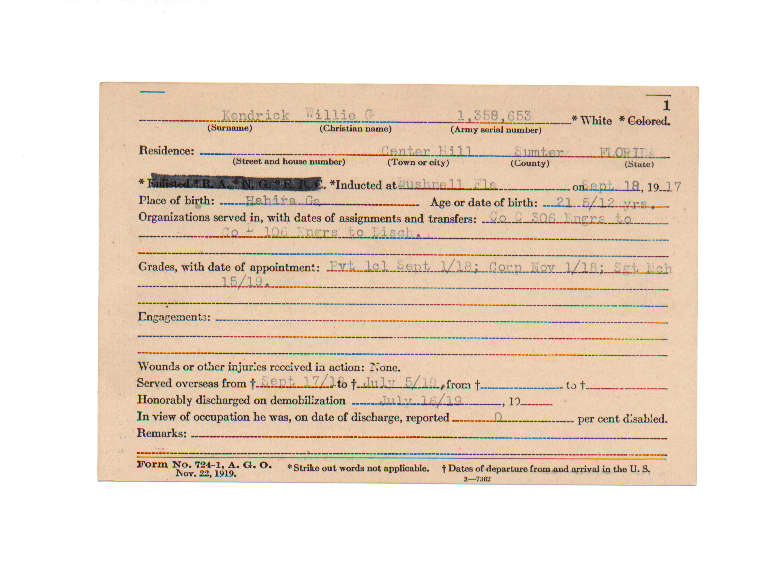 1
Kendrick Willie G 1,358,653 * White * Colored.
(Surname) (Christian name) (Army serial number)
Residence: Center Hill Sumter FLORIDA
(Street and house number) (Town or city) (County) (State)
* Enlisted * R. A. * N. G. * E. R. C. *Inducted at Bushnell Fla on Sept 18, 1917
Place of birth: Hahira Ga Age or date of birth: 21 5/12 yrs.
Organizations served in, with dates of assignments and transfers: Co C 306 Engrs to
Co 106 Engrs to Disch.
Grades, with date of appointment: Pvt 1cl Sept 1/18; Corp Nov 1/18; Sgt Mch
15/19.
Engagements:
Wounds or other injuries received in action: None.
Served overseas from † Sept 17/18 to † July 5/19, from † to †
Honorably discharged on demobilization July 16/19, 19
In view of occupation he was, on date of discharge, reported 0 per cent disabled.
Remarks:
Form No. 724-1, A. G. O. *Strike out words not applicable. † Dates of departure from and arrival in the U. S.
Nov. 22, 1919. 3—7302